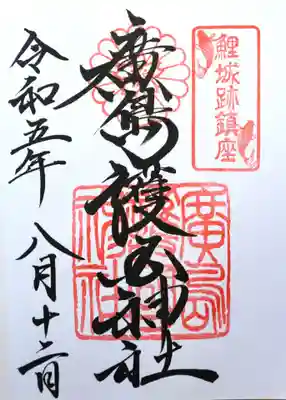 鯉城跡鎮座
廣島護国神社
令和五年
八月十二日
廣島護國神社